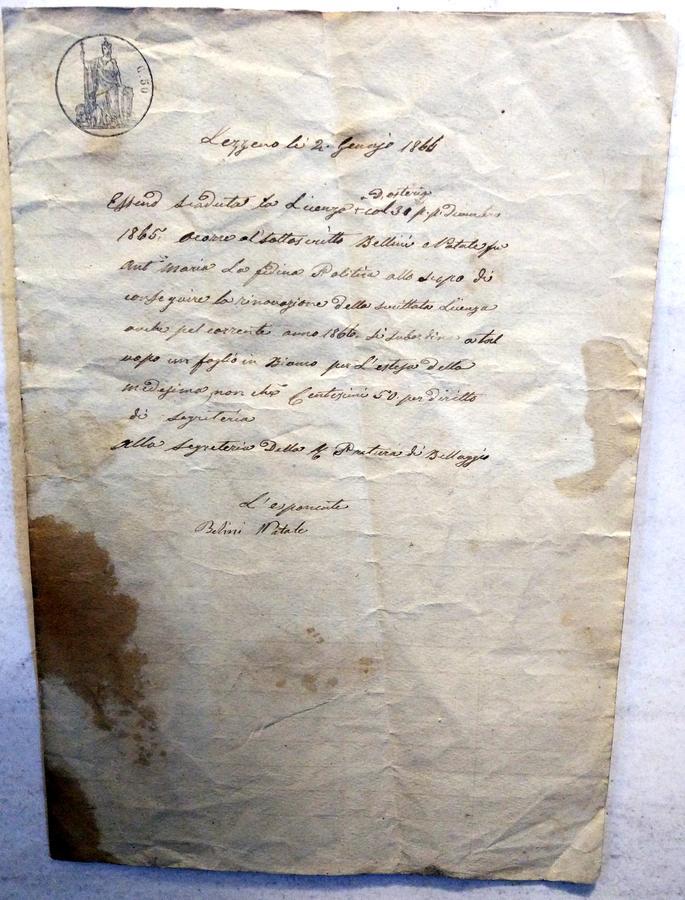 C. 50
Lezzeno li 2. Genajo 1866
d'osteria
Essend scaduta la Licenza + col 30 p. p. Dicembre
1865. ocorre al sottoscritto Bellini Natale fu
Ant.o Maria La fedina Politica allo scopo di
conseguire la rinovazione della sucittata Licenza
anche pel corrente anno 1866. si subordina a tal
uopo un foglio in Bianco per L'estesa della
medesima, non chè Centesimi 50 per diritto
di segreteria
Alla Segreteria Della R. Pretura di Bellaggio
L'esponente
Belini Natale